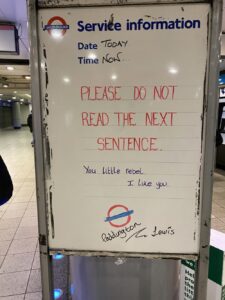 Service information
Date TODAY
Time NOW...
PLEASE DO NOT
READ THE NEXT
SENTENCE.
You little rebel.
I like you.
Paddington
Lewis